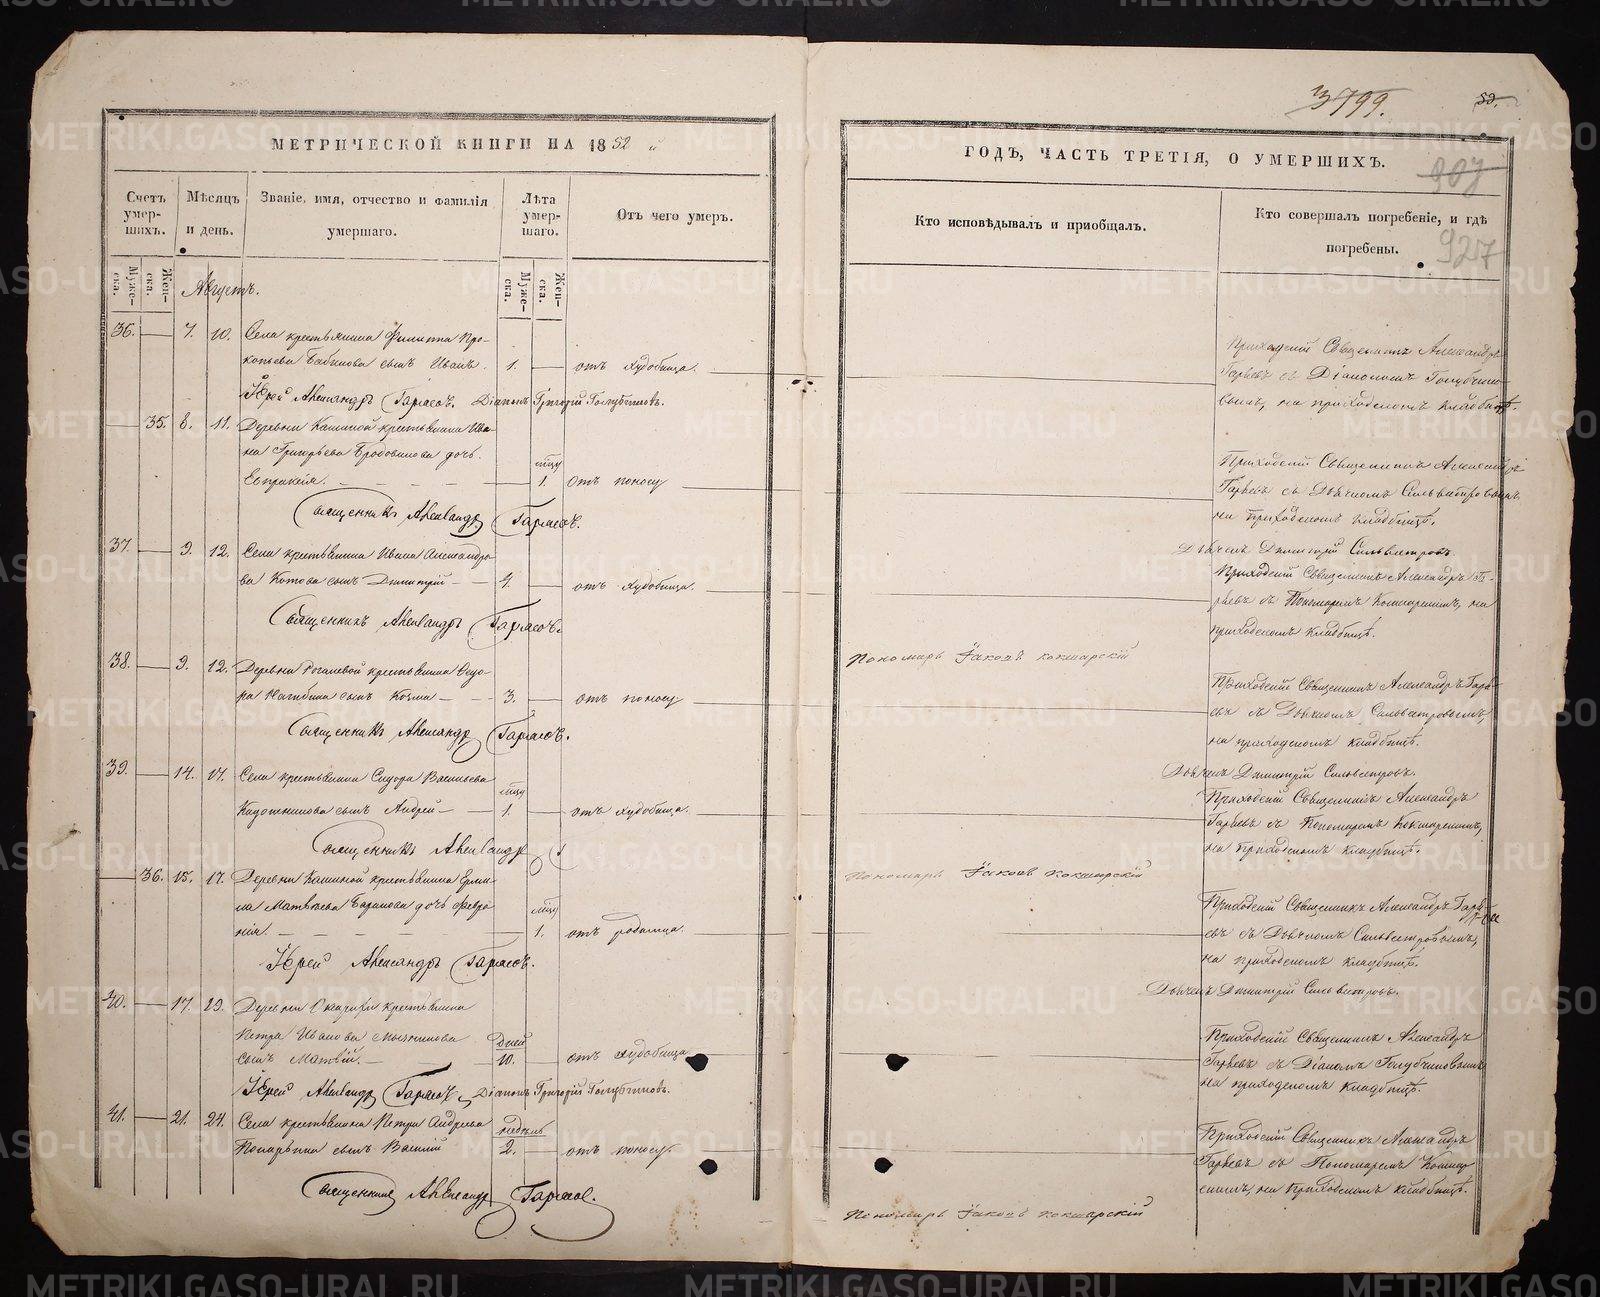 МЕТРИЧЕСКОЙ КНИГИ НА 1852 й
ГОДЪ, ЧАСТЬ ТРЕТІЯ, О УМЕРШИХЪ.
3799.
59.
907
927
Счетъ умершихъ.
Мѣсяцъ и день.
Званіе, имя, отчество и фамилія умершаго.
Лѣта умершаго.
Отъ чего умеръ.
Кто исповѣдывалъ и пріобщалъ.
Кто совершалъ погребеніе, и гдѣ погребены.
Мужеска.
Женска.
Мужеска.
Женска.
Августъ.
36. 7. 10. Села крестьянина Филиппа Про-
копьева Бабинова сынъ Иванъ. 1. отъ худобища.
Іерей Александръ Гаряевъ. Діаконъ Григорій Голубчиковъ.
Приходскій Священникъ Александръ
Гаряевъ съ Діакономъ Голубчико-
вымъ, на приходскомъ кладбищѣ.
35. 8. 11. Деревни Кашиной крестьянина Ива-
на Григорьева дочь
Евпраксія. мцъ 1. Отъ поносу
Священникъ Александръ Гаряевъ.
Приходскій Священникъ Александръ
Гаряевъ съ Дьячкомъ Сильвестровымъ,
на приходскомъ кладбищѣ.
Дьячекъ Димитрій Сильвестровъ.
37. 9. 12. Села крестьянина Ивана Александро-
ва Котова сынъ Димитрій 4. отъ худобища.
Священникъ Александръ Гаряевъ.
Приходскій Священникъ Александръ Га-
ряевъ съ Пономаремъ Кокшарскимъ, на
приходскомъ кладбищѣ.
Пономарь Іаковъ Кокшарскій
38. 9. 12. Деревни крестьянина Ѳедо-
ра сынъ Козма 3. отъ поносу
Священникъ Александръ Гаряевъ.
Приходскій Священникъ Александръ Гаря-
евъ съ Дьячкомъ Сильвестровымъ,
на приходскомъ кладбищѣ.
Дьячекъ Димитрій Сильвестровъ.
39. 14. 17. Села крестьянина Сидора Васильева
сынъ Андрей мцъ 1. отъ худобища.
Священникъ Александръ
Приходскій Священникъ Александръ
Гаряевъ съ Пономаремъ Кокшарскимъ,
на приходскомъ кладбищѣ.
Пономарь Іаковъ Кокшарскій
36. 15. 17. Деревни Кашиной крестьянина Ерми-
ла Матвѣева Баринова дочь Февро-
нія. мцъ 1. отъ родимца.
Іерей Александръ Гаряевъ.
Приходскій Священникъ Александръ Гаря-
евъ съ Дьячкомъ Сильвестровымъ,
на приходскомъ кладбищѣ.
Дьячекъ Димитрій Сильвестровъ.
40. 17. 19. Деревни крестьянина
Петра Иванова
сынъ Матвій. Дней 10. отъ худобища
Іерей Александръ Гаряевъ, Діаконъ Григорій Голубчиковъ.
Приходскій Священникъ Александръ
Гаряевъ съ Діакономъ Голубчиковымъ
на приходскомъ кладбищѣ.
41. 21. 24. Села крестьянина Петра Андреева
сынъ Василій недѣль 2. отъ поносу.
Священникъ Александръ Гаряевъ.
Приходскій Священникъ Александръ
Гаряевъ съ Пономаремъ Кокшар-
скимъ, на приходскомъ кладбищѣ.
Пономарь Іаковъ Кокшарскій
METRIKI.GASO-URAL.RU